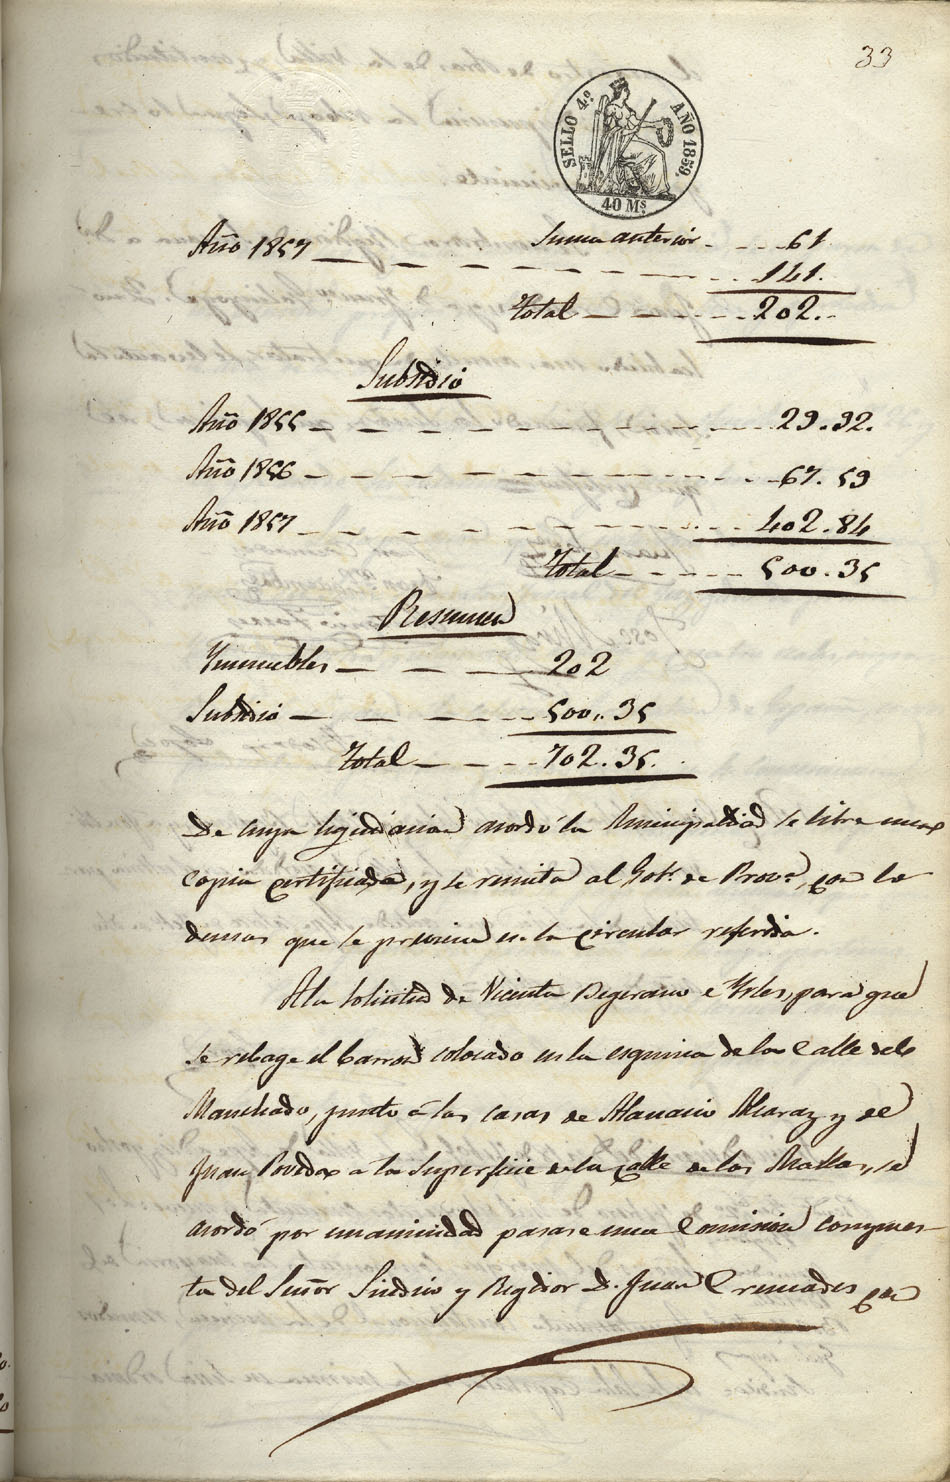 33
SELLO 4.º AÑO 1859.
40 Ms
Suma anterior 61
Año 1857 141.
Total 202.
Subsidio
Año 1855 29.92.
Año 1856 67.59
Año 1857 402.84
Total 500.35
Resumen
Ynmuebles 202
Subsidio 500.35
Total 702.35.
De cuya liquidacion acordó la Municipalidad se libre una
copia certificada, y se remita al Gobr. de Prova. con lo
demas que se previene en la circular referida.
A la solicitud de Vicenta Begerano e Yrles, para que
se rebage el barron colocado en la esquina de la Calle del
Manchado, junto á las casas de Atanacio Alcaraz y de
Juan Poveda a la Superficie de la calle de las Mallas, se
acordó por unanimidad pasase una Comision compues-
ta del Señor Sindico y Regidor D. Juan Cremades con